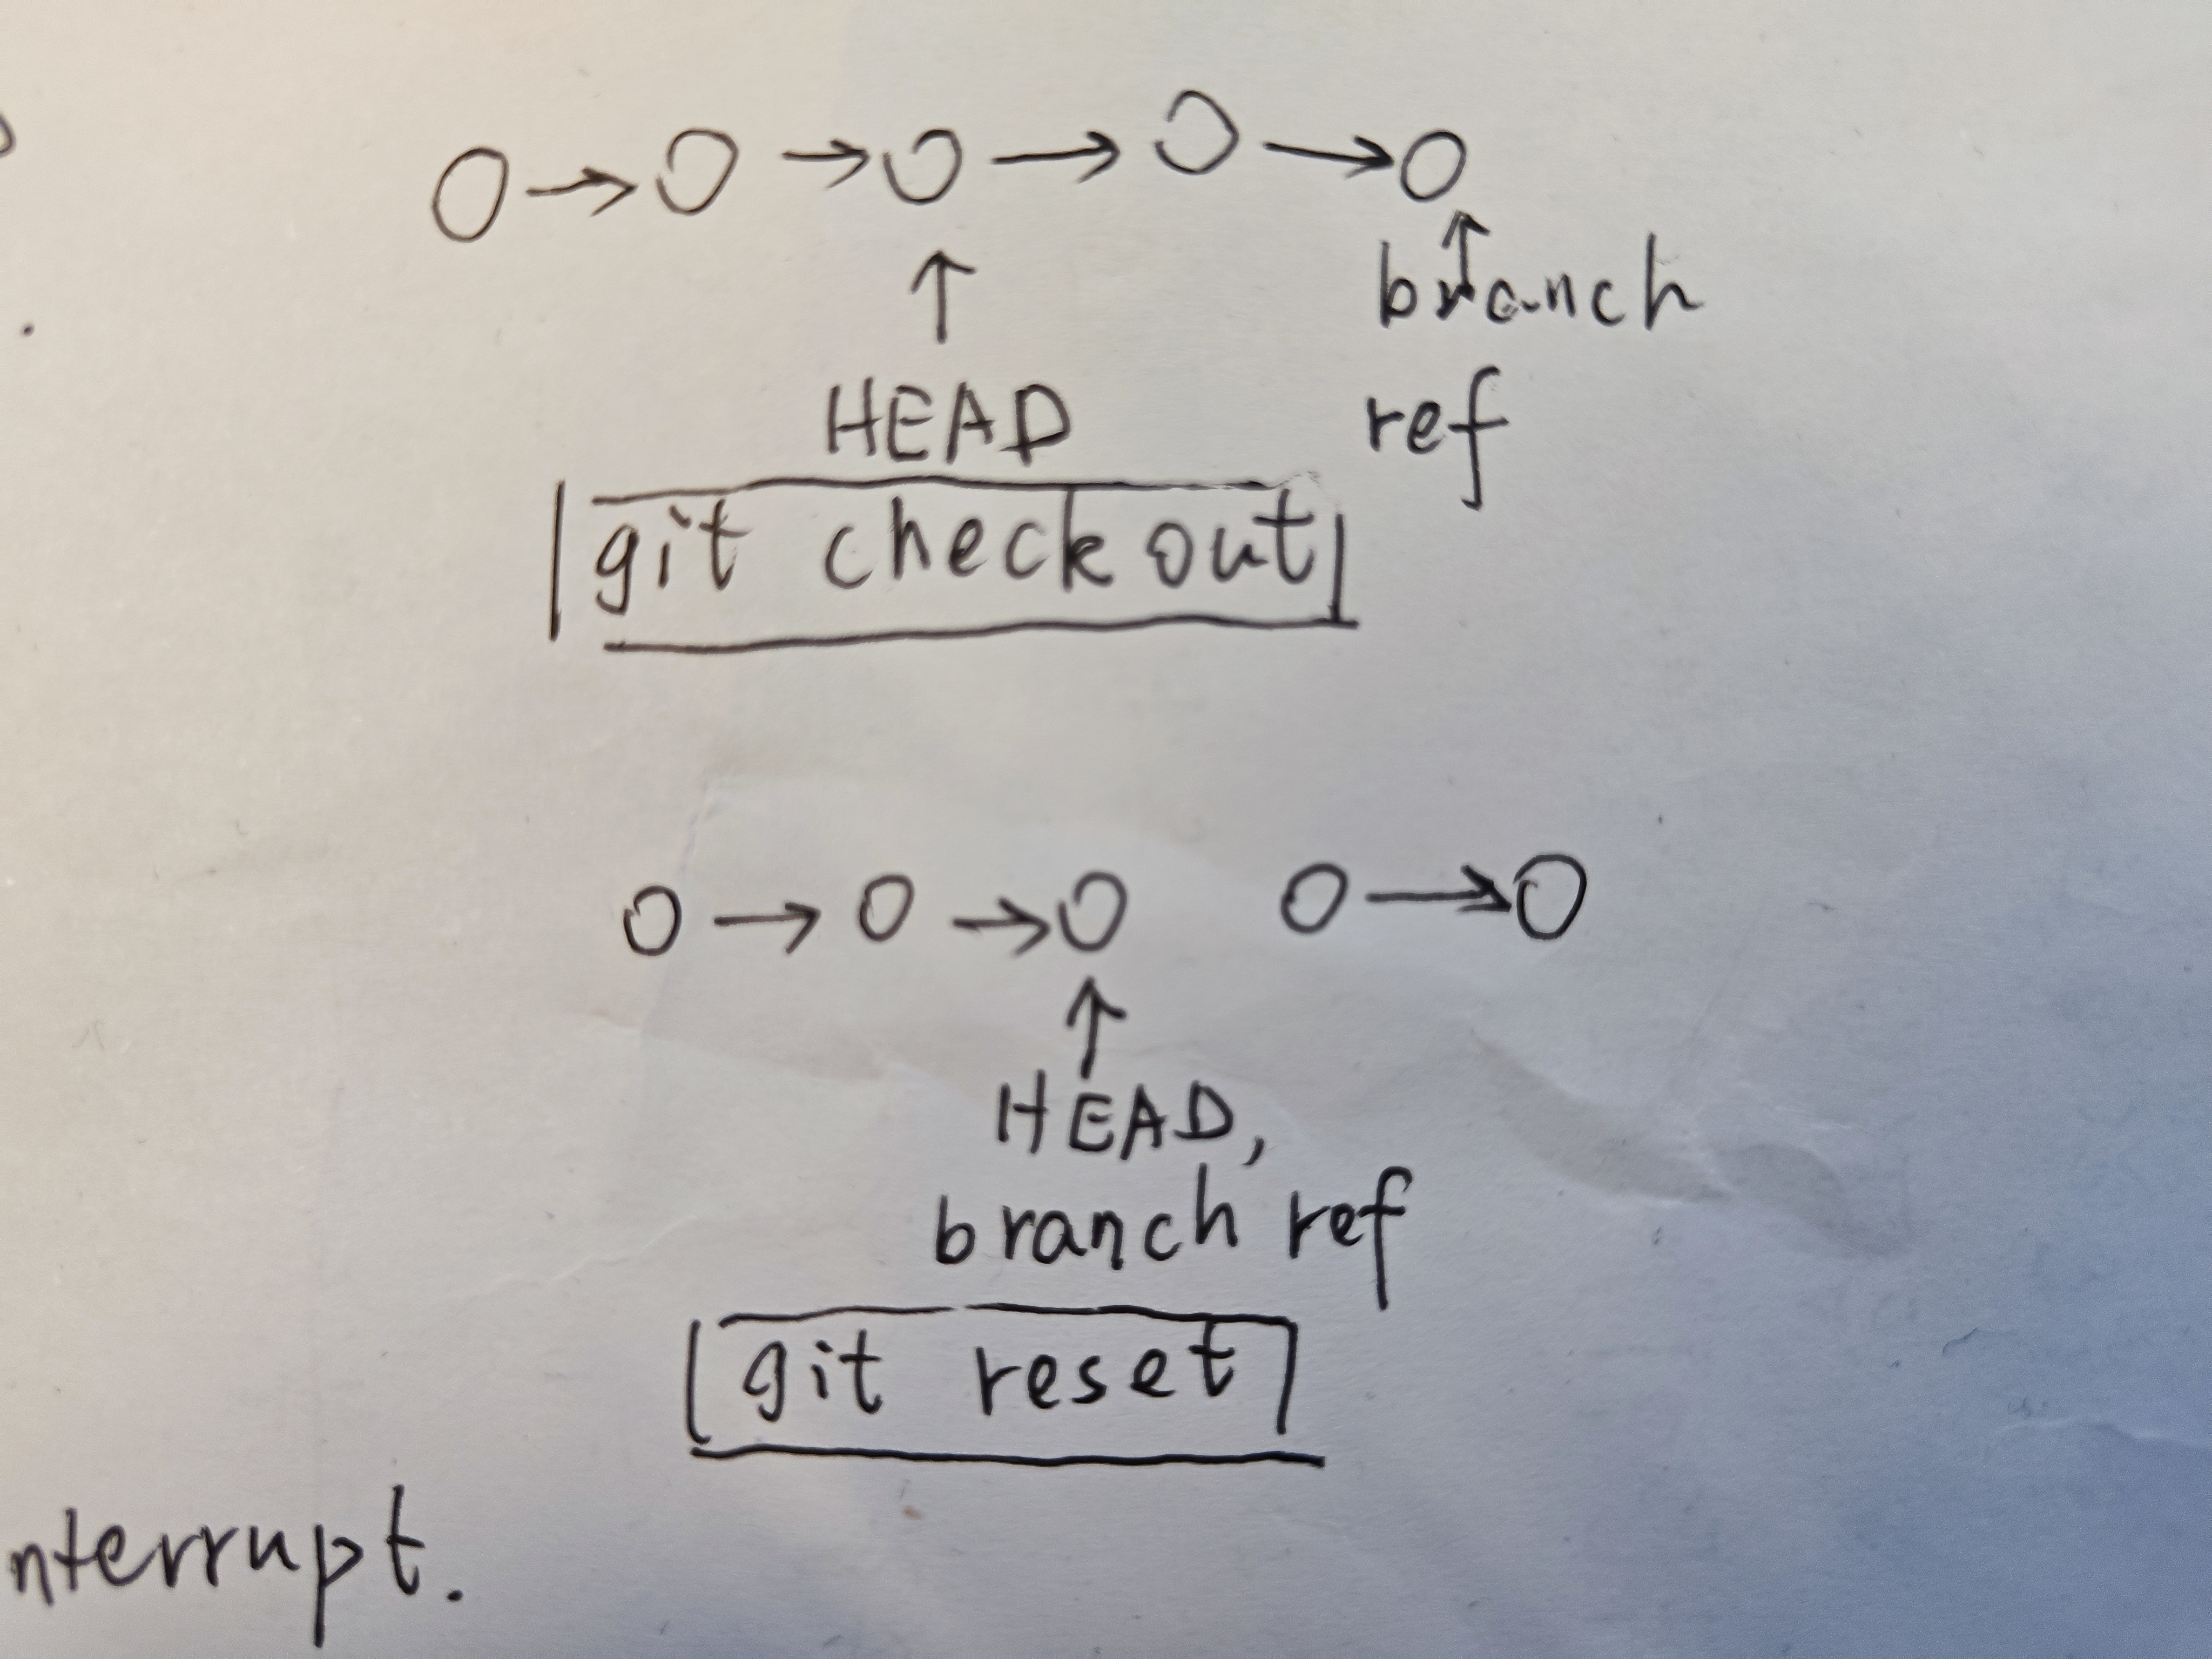 HEAD
branch
ref
git checkout
HEAD,
branch ref
git reset
nterrupt.